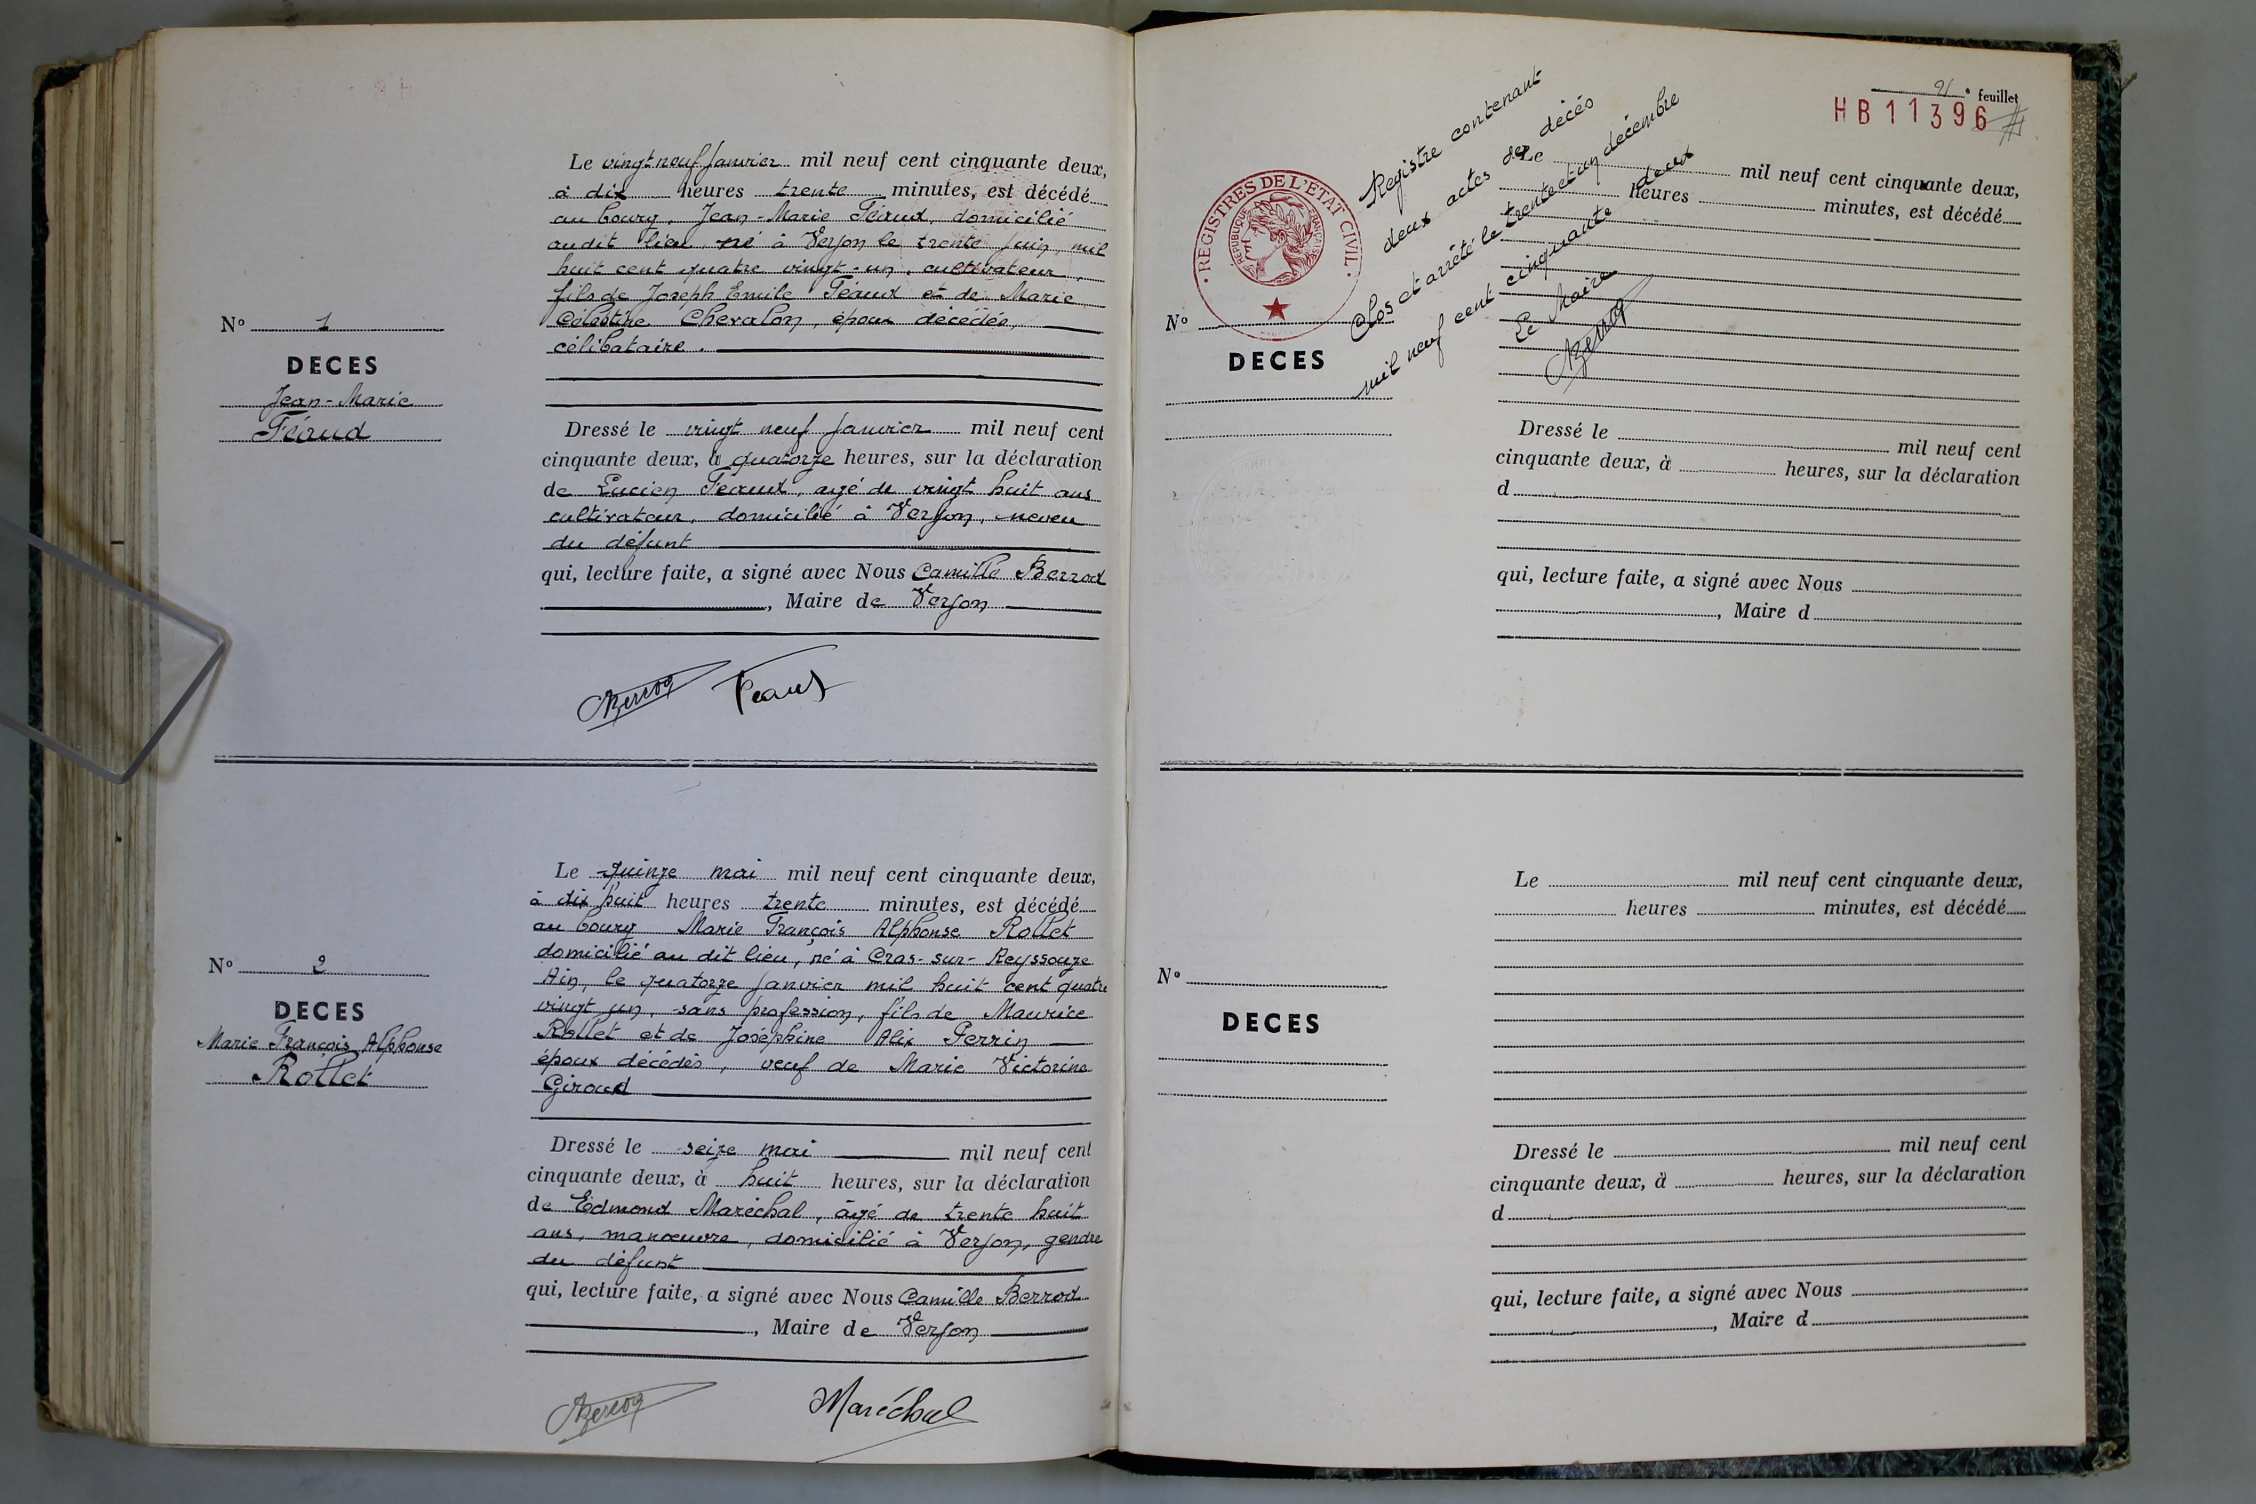 Le vingt neuf Janvier mil neuf cent cinquante deux,
à dix heures trente minutes, est décédé
au bourg, Jean-Marie Féaud, domicilié
audit lieu né à Verjon le trente Juin, mil
huit cent quatre vingt-un, cultivateur,
fils de Joséph Emile Féaud et de Marie
Célestine Chevalon, époux decédés,
célibataire.
N° 1
DECES
Jean-Marie
Féaud
Dressé le vingt neuf Janvier mil neuf cent
cinquante deux, à quatorze heures, sur la déclaration
de Lucien Féaud, agé de vingt huit ans
cultivateur, domicilié à Verjon, neveu
du défunt
qui, lecture faite, a signé avec Nous Camille Berrod
, Maire de Verjon
Féaud
Le quinze mai mil neuf cent cinquante deux,
à dix huit heures trente minutes, est décédé
au bourg Marie François Alphonse Rollet
domicilié au dit lieu, né à Cras-sur-Reyssouze
Ain, le quatorze Janvier mil huit cent quatre
vingt un, sans profession, fils de Maurice
Rollet et de Joséphine Alix Perrin
époux décédés, veuf de Marie Victorine
Giroud
N° 2
DECES
Marie François Alphonse
Rollet
Dressé le seize mai mil neuf cent
cinquante deux, à huit heures, sur la déclaration
de Edmond Maréchal, âgé de trente huit
ans, manœuvre, domicilié à Verjon, gendre
du défunt
qui, lecture faite, a signé avec Nous Camille Berrod
, Maire de Verjon
Maréchal
91e feuillet
HB11396
REGISTRES DE L'ETAT CIVIL
REPUBLIQUE FRANÇAISE
Registre contenant
deux actes de décés
Clos et arrêté le trente et un décembre
mil neuf cent cinquante deux
Le Maire
Le mil neuf cent cinquante deux,
heures minutes, est décédé
N°
DECES
Dressé le mil neuf cent
cinquante deux, à heures, sur la déclaration
d
qui, lecture faite, a signé avec Nous
, Maire d
Le mil neuf cent cinquante deux,
heures minutes, est décédé
N°
DECES
Dressé le mil neuf cent
cinquante deux, à heures, sur la déclaration
d
qui, lecture faite, a signé avec Nous
, Maire d